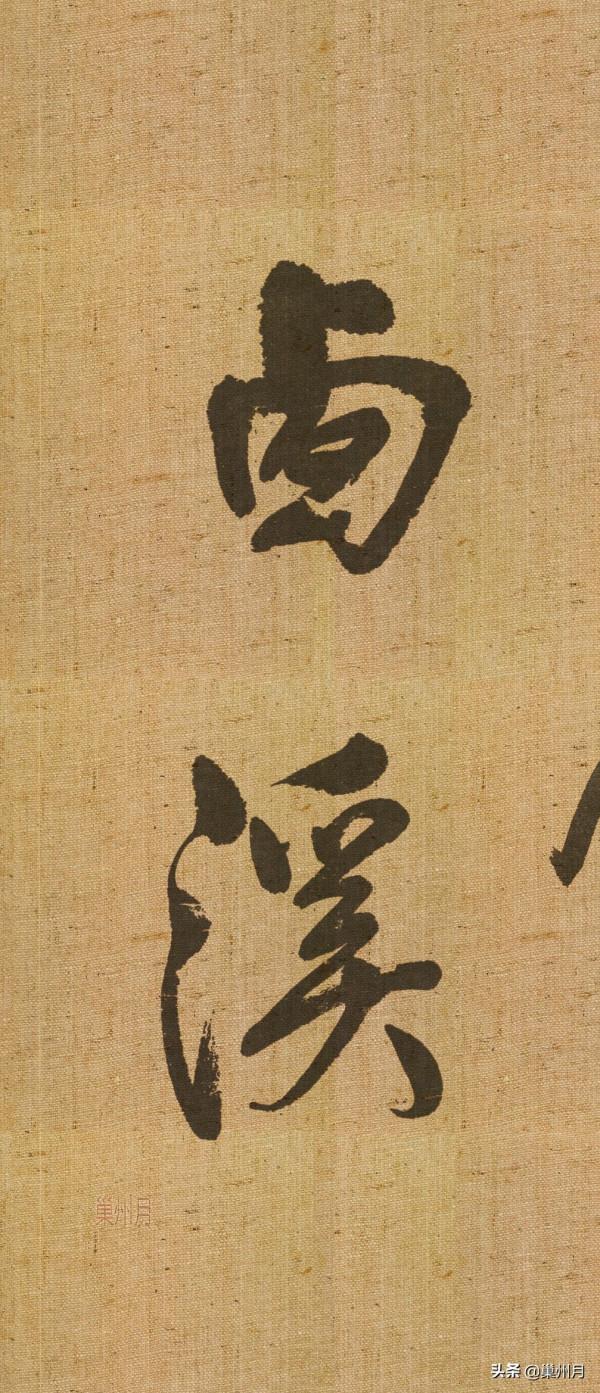 卣溪
巢州月
头条 @巢州月